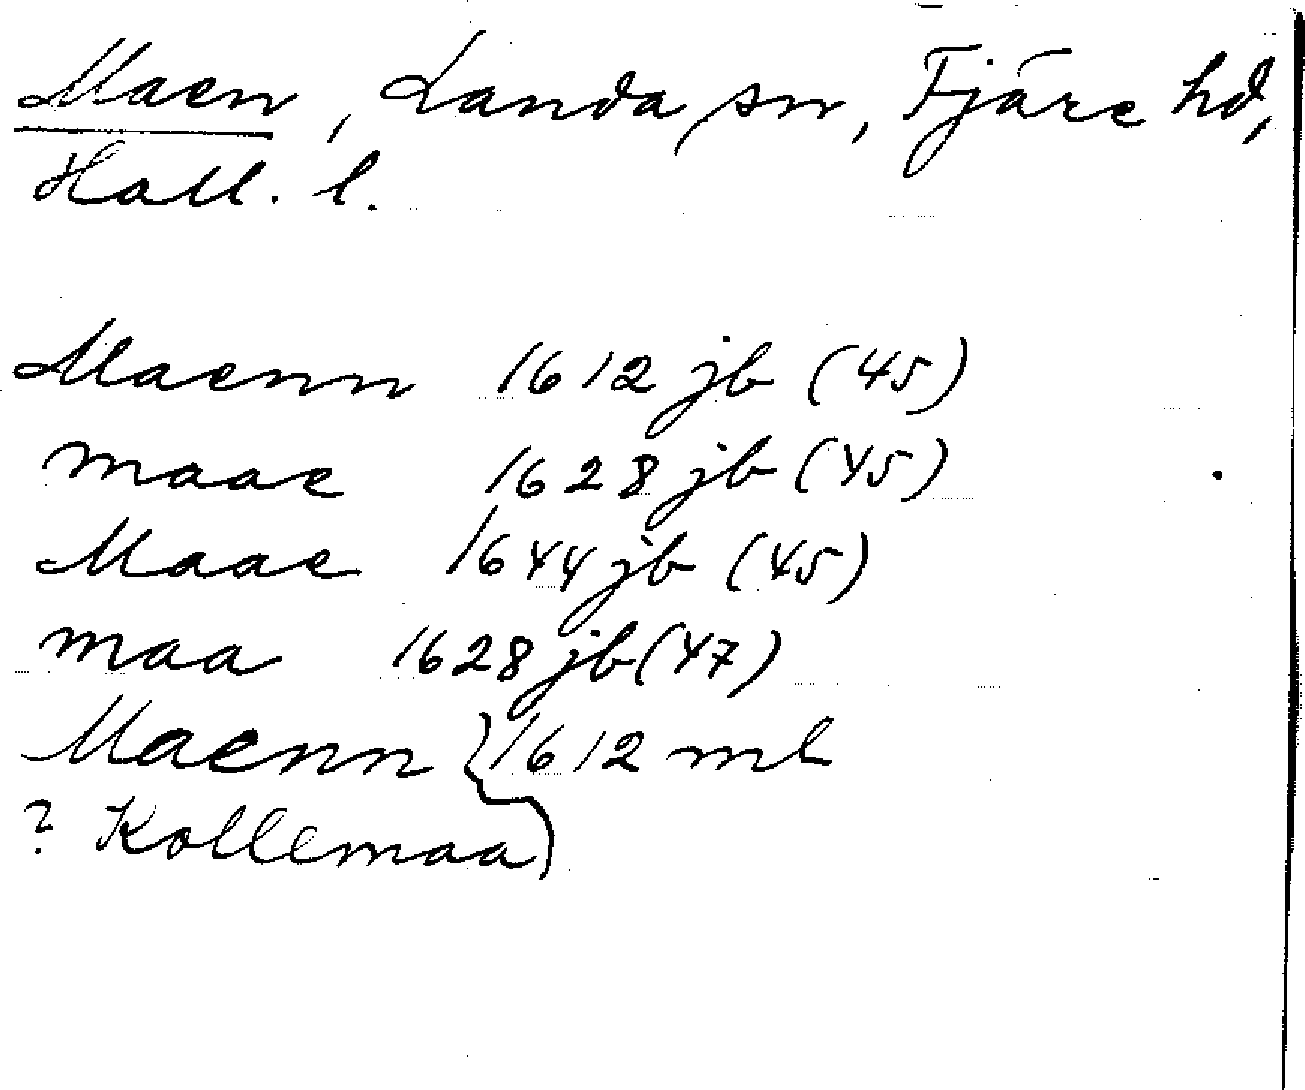 Maen, Landa sn, Fjäre hd,
Hall. l.
Maenn 1612 jb (45)
maae 1628 jb (45)
Maae 1644 jb (45)
maa 1628 jb (47)
Maenn } 1612 ml
? Kollemaa }